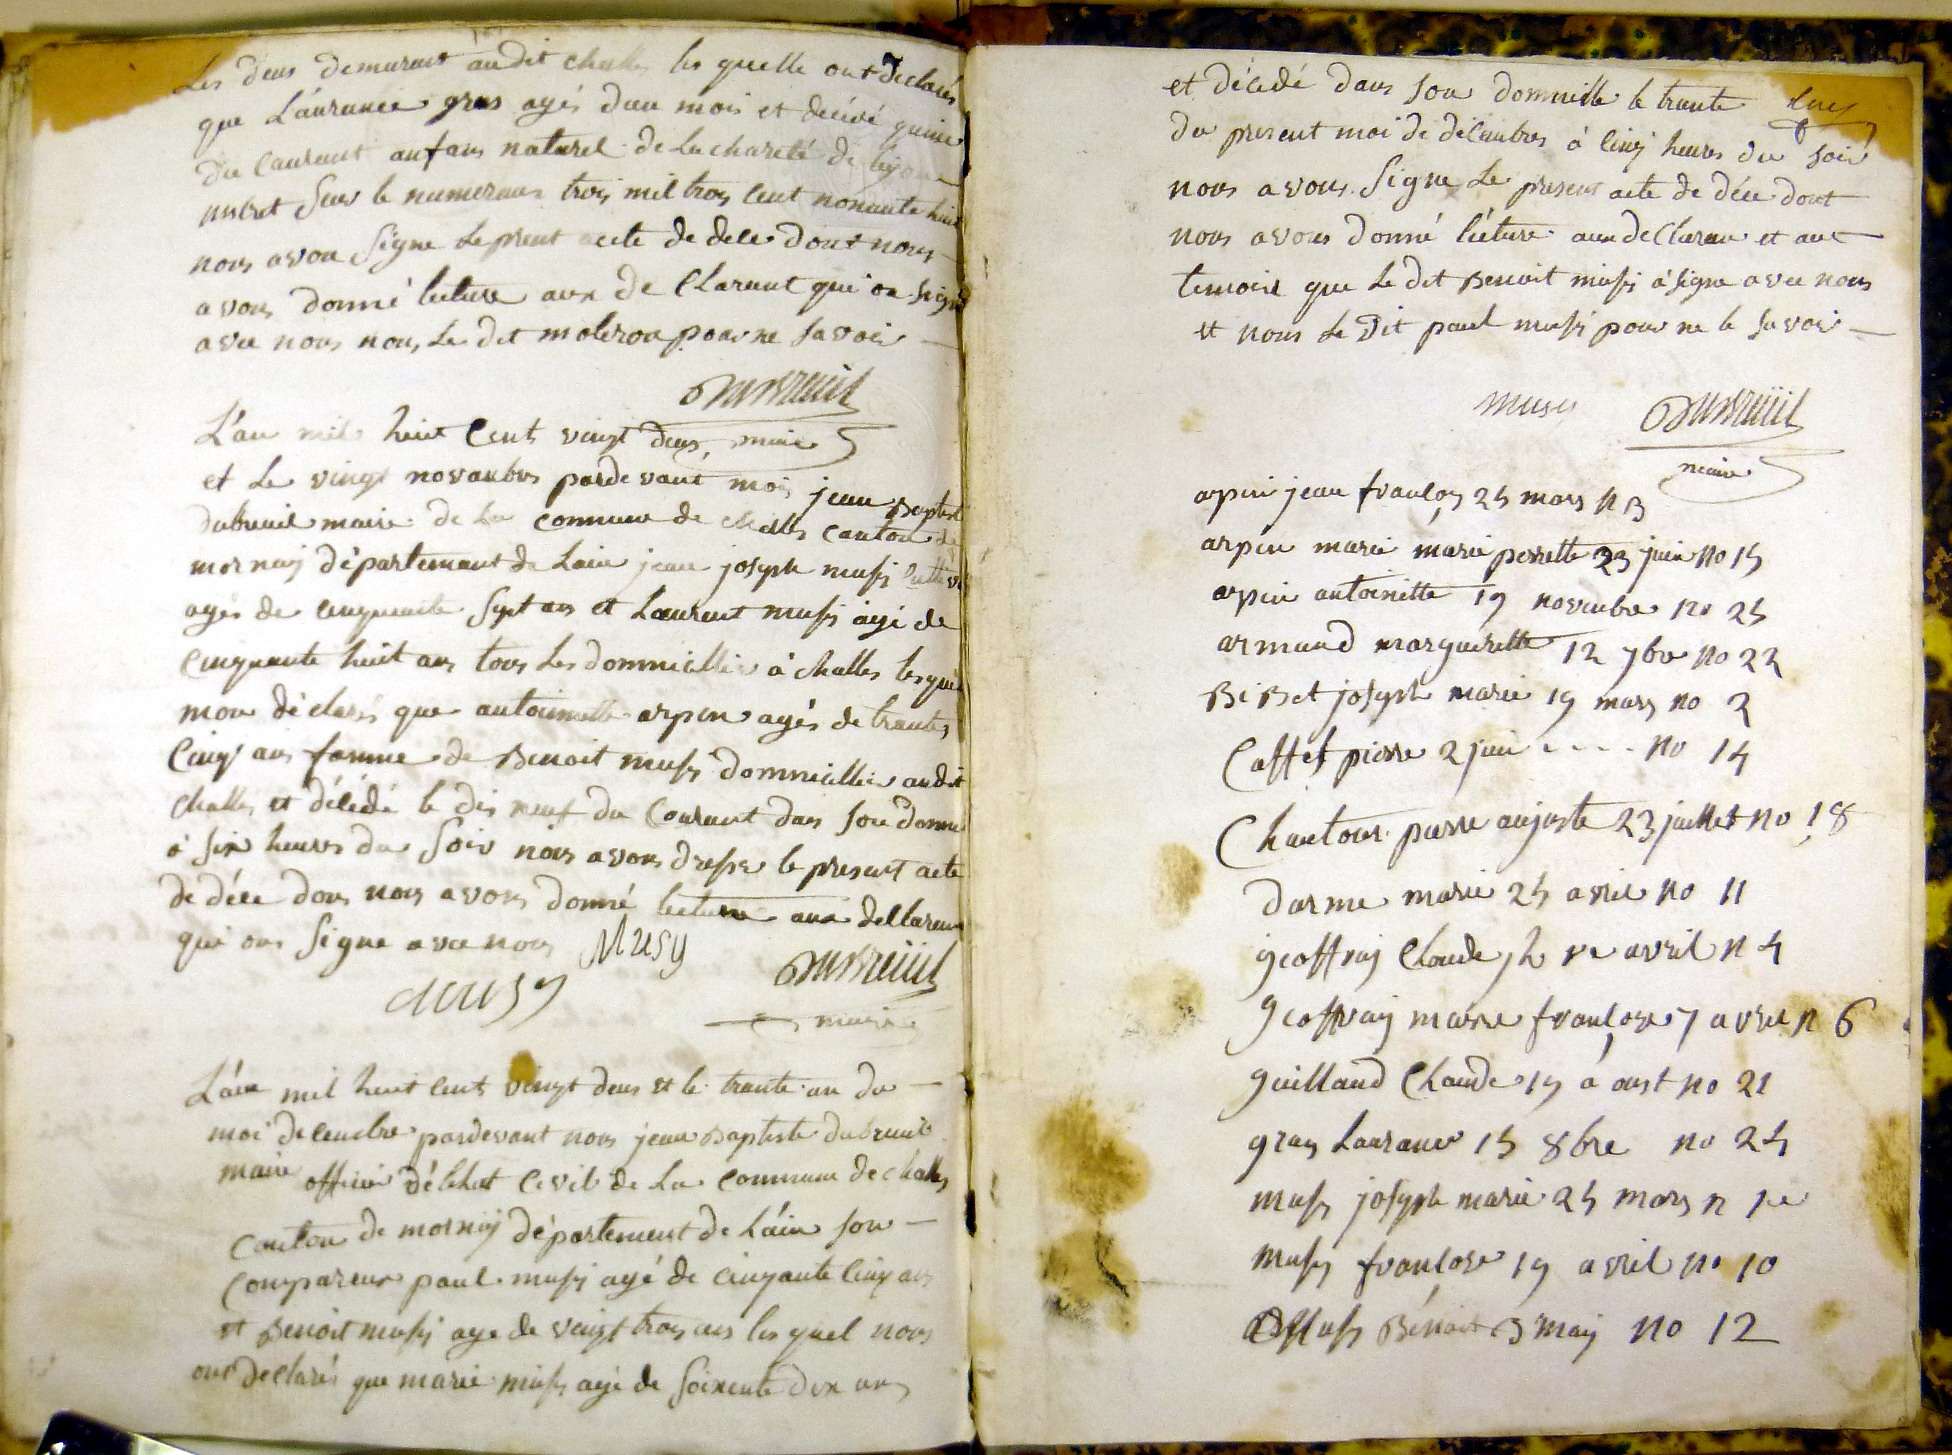 Les deus demurant audit challes les quelle ont declarés
que Laurance gras agés dun mois et décédé quinse
du Courent anfans naturel de La charité de lyon
mat Sur le numeraux trois mil trois Cent nonante huit
nous avon Signe Le preut acte de dele dont nous
avons donné lecture aux de Clarent qui on Signe
avec nous nous Le dit moleron pour ne Savoir
Dubreüil
L'an mil huit Cent vingt deus, maire
et Le vingt novanbres pardevant moi jean Baptist
dubreuil maire de La Commune de challes Canton de
mornaj département de Lain jean joseph musy
agés de Cinquante Sept ans et Laurent musy agé de
Cinquante huit ans tous Les domniciellie à challes lesquel
mon déclarés que antoinette arpin agés de trante
Cinq ans famme de Benoit musy domniciellie audit
challes et décédé le dis neuf du Courent dans Son domni
à Six heures du Soir nous avons dresser le present acte
de déce dons nous avons donné lecture aux declareu
qui ons Signe avec nous Musy
Musy Dubreüil
maire
L'an mil huit Cent vingt deus et le trante un du
moi decenbre pardevant nous jean Baptiste dubreuil
maire officié délétat Civil de La Commune de challes
Canton de mornaj département de Láin Son
Compareux paul musy agé de Cinqante Cinq ans
et Benoit musy age de vaingt trois ans les quel nous
ont declarés que marie musy agé de Soixente dix ans
et décedé dans Son domnicille le trante
du present moi de décanbres à Cinq heures du Soir
nous avons Signe Le presens acte de déce dont
nous avons donné lécture aux declareu et aux
temoins que Le dit Benoit musy à Signe avec nous
et nous Le dit paul musy pour ne le Savoir
musy Dubreüil
maire
arpin jean françois 25 mars n 3
arpin marie marie perrette 23 juin no 15
arpin antoinette 19 novenbre no 25
armand margueritte 12 7bre no 22
BiBet joseph marie 19 mars no 2
Caffet pierre 2 juin - - - - no 14
Chanton pierre aujuste 23 juillet no 18
darme marie 25 avril no 11
geoffraj Claude 1re avril n 4
geoffraj marie françose 7 avril n 6
guilland Claude 19 aoust no 21
gras Laurance 15 8bre no 24
musy joseph marie 25 mars n 1re
musy françose 19 avril no 10
Musy Bénoit 3 maij no 12